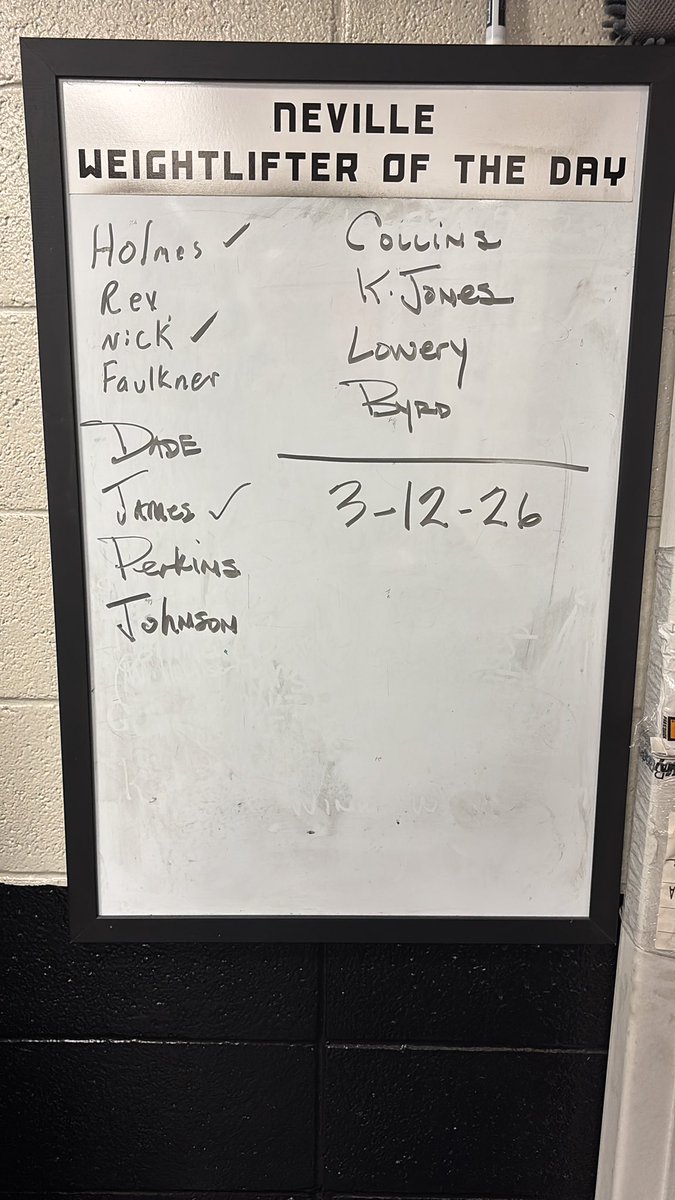 NEVILLE
WEIGHTLIFTER OF THE DAY
Holmes ✓
Rev.
Nick ✓
Faulkner
Dade
James ✓
Perkins
Johnson
Collins
K. Jones
Lowery
Byrd
3-12-26